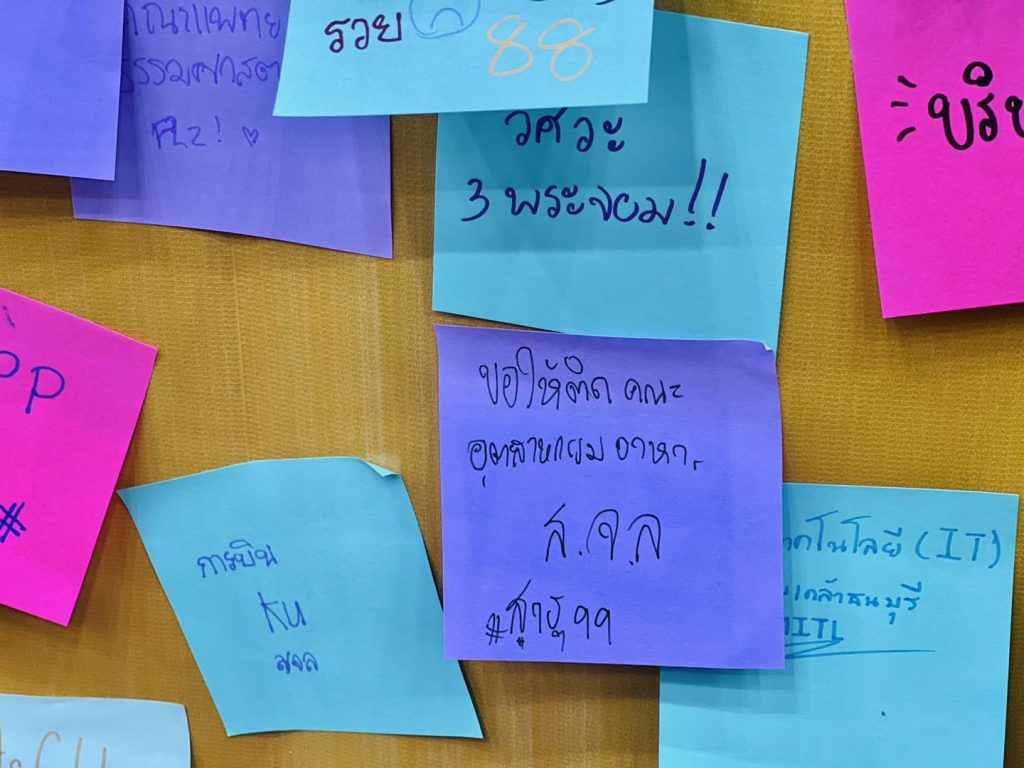 รวย
88
คณะแพทย
ธรรมศาสต
PLZ! ♡
วศวะ
3 พระจอม!!
ขอให้ติด คณะ
อุตสาหกรรม อาหาร
ส.จ.ล
#สาธุ99
การบิน
KU
สจล
คโนโลยี (IT)
เกล้าธนบุรี
#